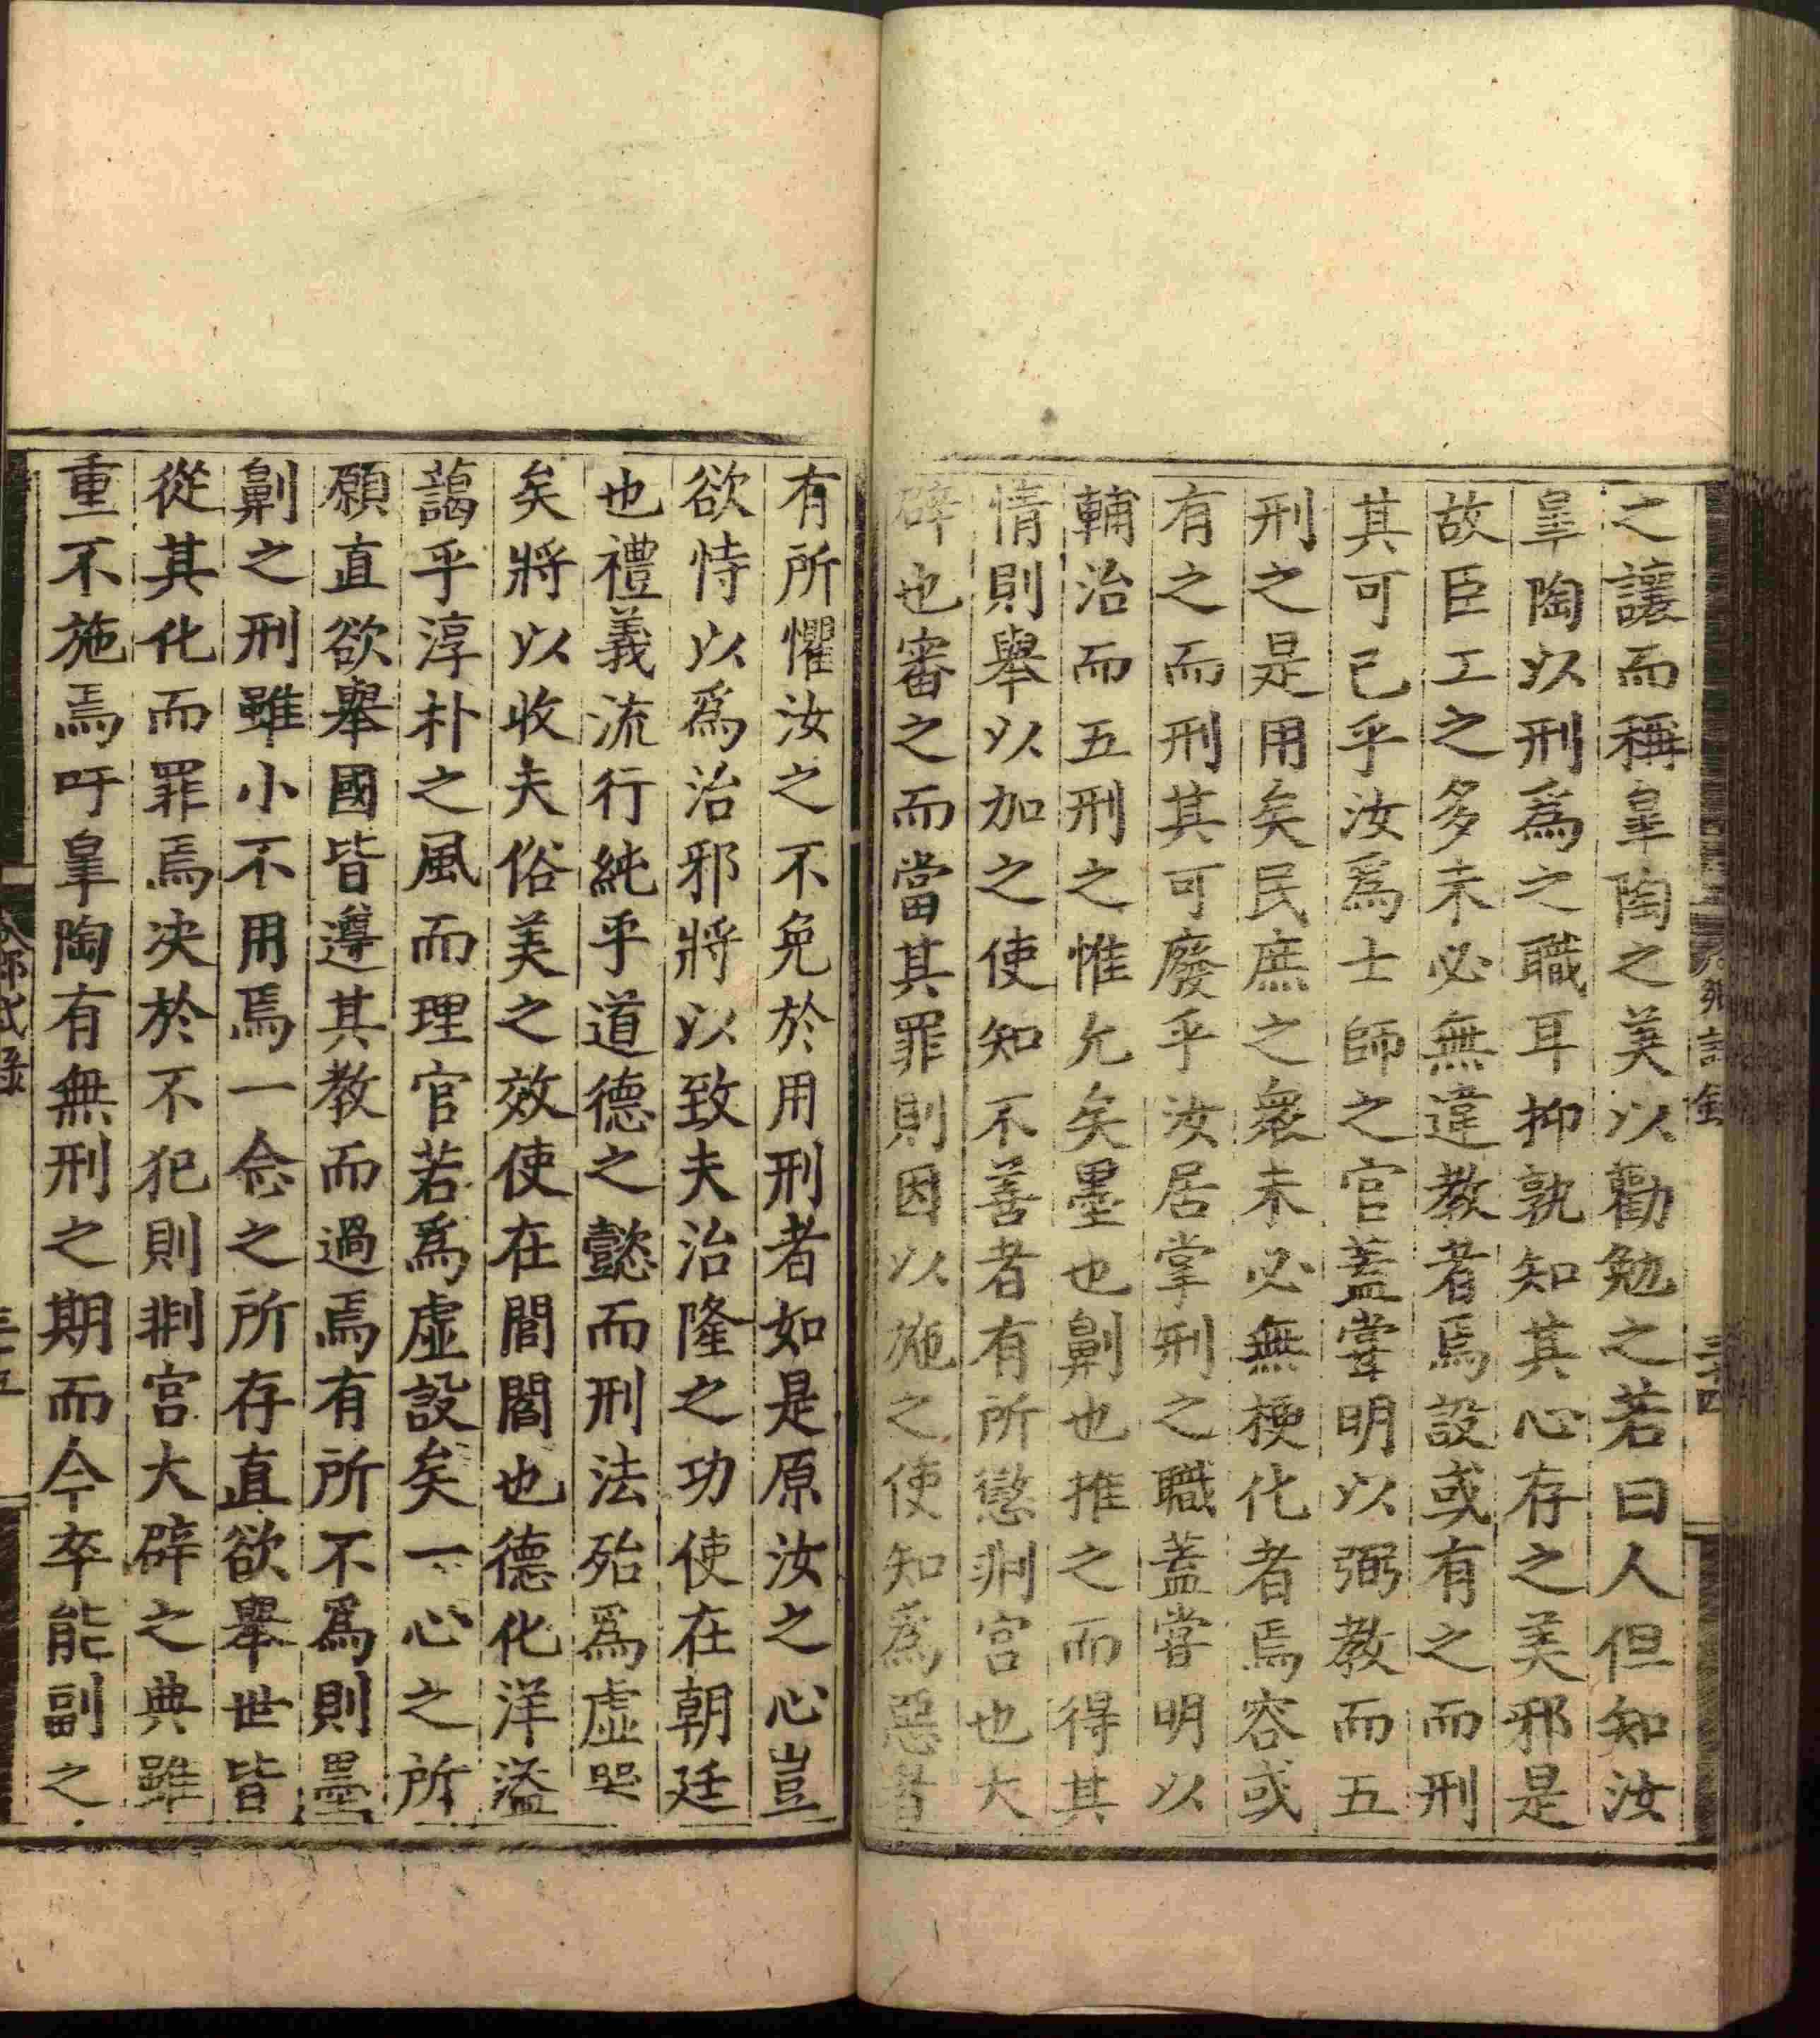 之讓而稱皐陶之美以勸勉之若曰人但知汝
皐陶以刑爲之職耳抑孰知其心存之美邪是
故臣工之多未必無違教者焉設或有之而刑
其可已乎汝爲士師之官蓋甞明以弼教而五
刑之是用矣民庶之衆未必無梗化者焉容或
有之而刑其可廢乎汝居掌刑之職蓋甞明以
輔治而五刑之惟允矣墨也劓也推之而得其
情則舉以加之使知不善者有所懲剕宫也大
辟也審之而當其罪則因以施之使知爲惡者
有所懼汝之不免於用刑者如是原汝之心豈
欲恃以爲治邪將以致夫治隆之功使在朝廷
也禮義流行純乎道德之懿而刑法殆爲虛器
矣將以收夫俗美之效使在閭閻也德化洋溢
藹乎淳朴之風而理官若爲虛設矣一心之所
願直欲舉國皆遵其教而過焉有所不爲則墨
劓之刑雖小不用焉一念之所存直欲舉世皆
從其化而罪焉决於不犯則剕宫大辟之典雖
重不施焉吁皐陶有無刑之期而今卒能副之